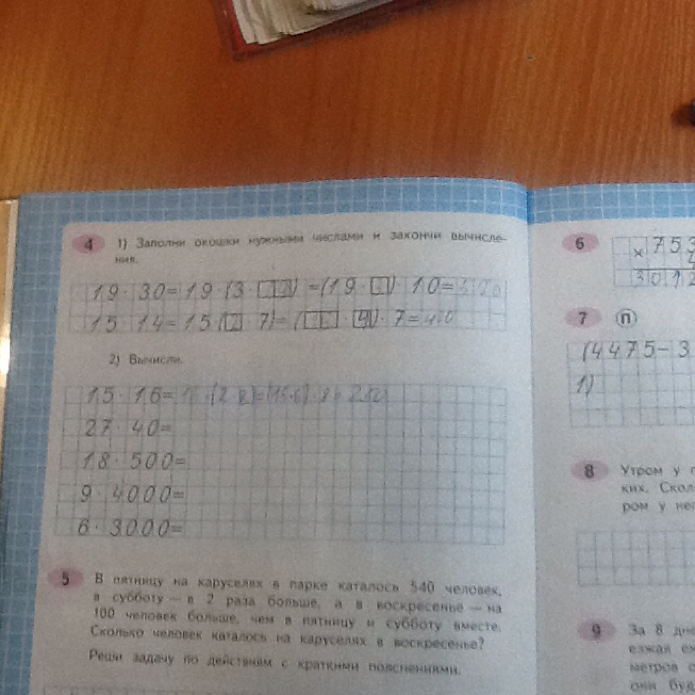 4 1) Заполни окошки нужными числами и закончи вычисле-
ния.
19 · 30 = 19 · (3 · 10) = (19 · 3) · 10 =
15 · 14 = 15 · (2 · 7) = ( · ) · 7 =
2) Вычисли.
15 · 16 =
27 · 40 =
18 · 500 =
9 · 4000 =
6 · 3000 =
5 В пятницу на каруселях в парке каталось 540 человек,
в субботу — в 2 раза больше, а в воскресенье — на
100 человек больше, чем в пятницу и субботу вместе.
Сколько человек каталось на каруселях в воскресенье?
Реши задачу по действиям с краткими пояснениями.
6 × 753
3012
7 П
(4475 – 3
1)
8 Утром у
ких. Скол
ром у не
9 За 8 дне
езжая еж
метров
они бу